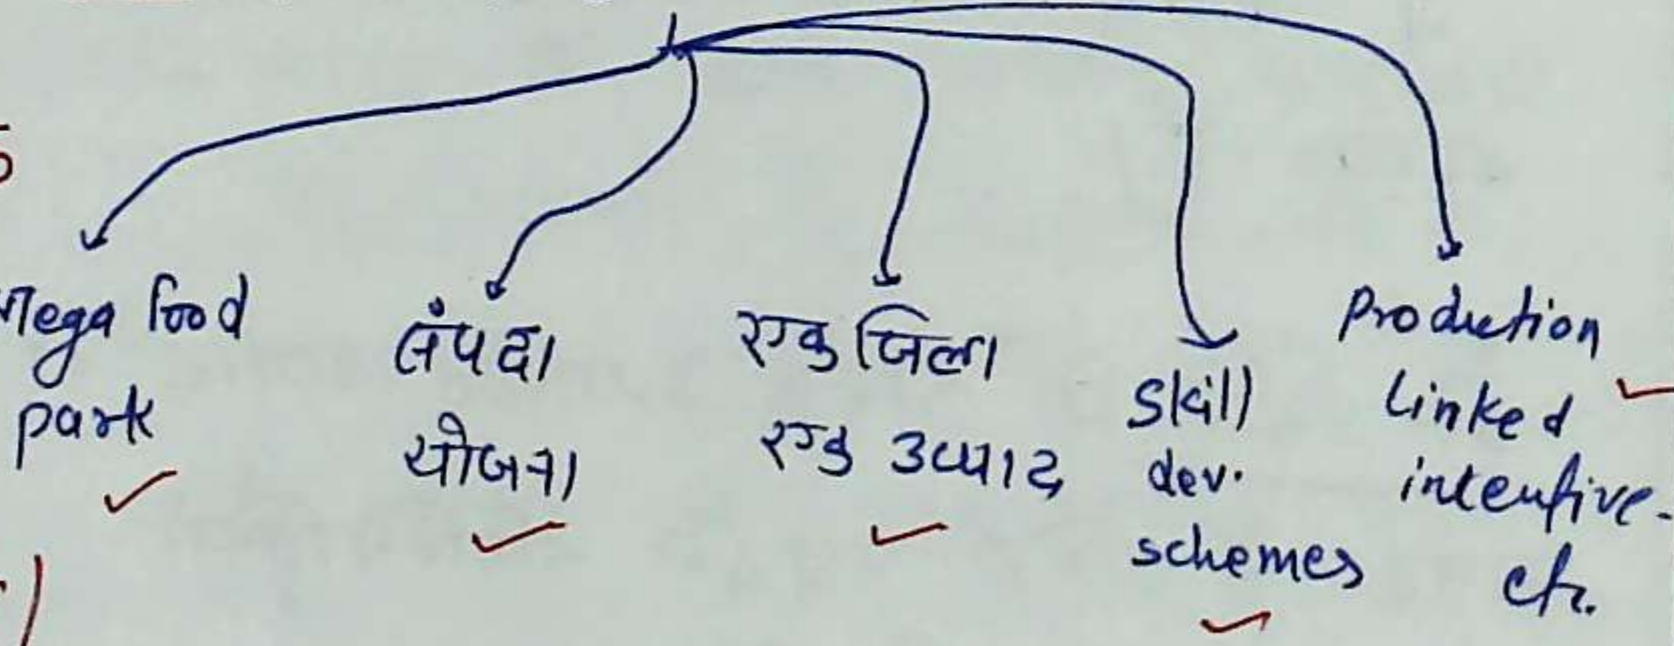 Mega food
park
संपदा
योजना
एक जिला
एक उत्पाद
Skill
dev.
schemes
Production
Linked
intentive.
etc.